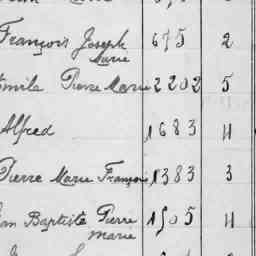 François Joseph 675 2
Marie
Emile Pierre Marie 2202 5
Alfred 1683 4
Pierre Marie François 1383 3
Jean Baptiste Pierre 1505 4
Marie